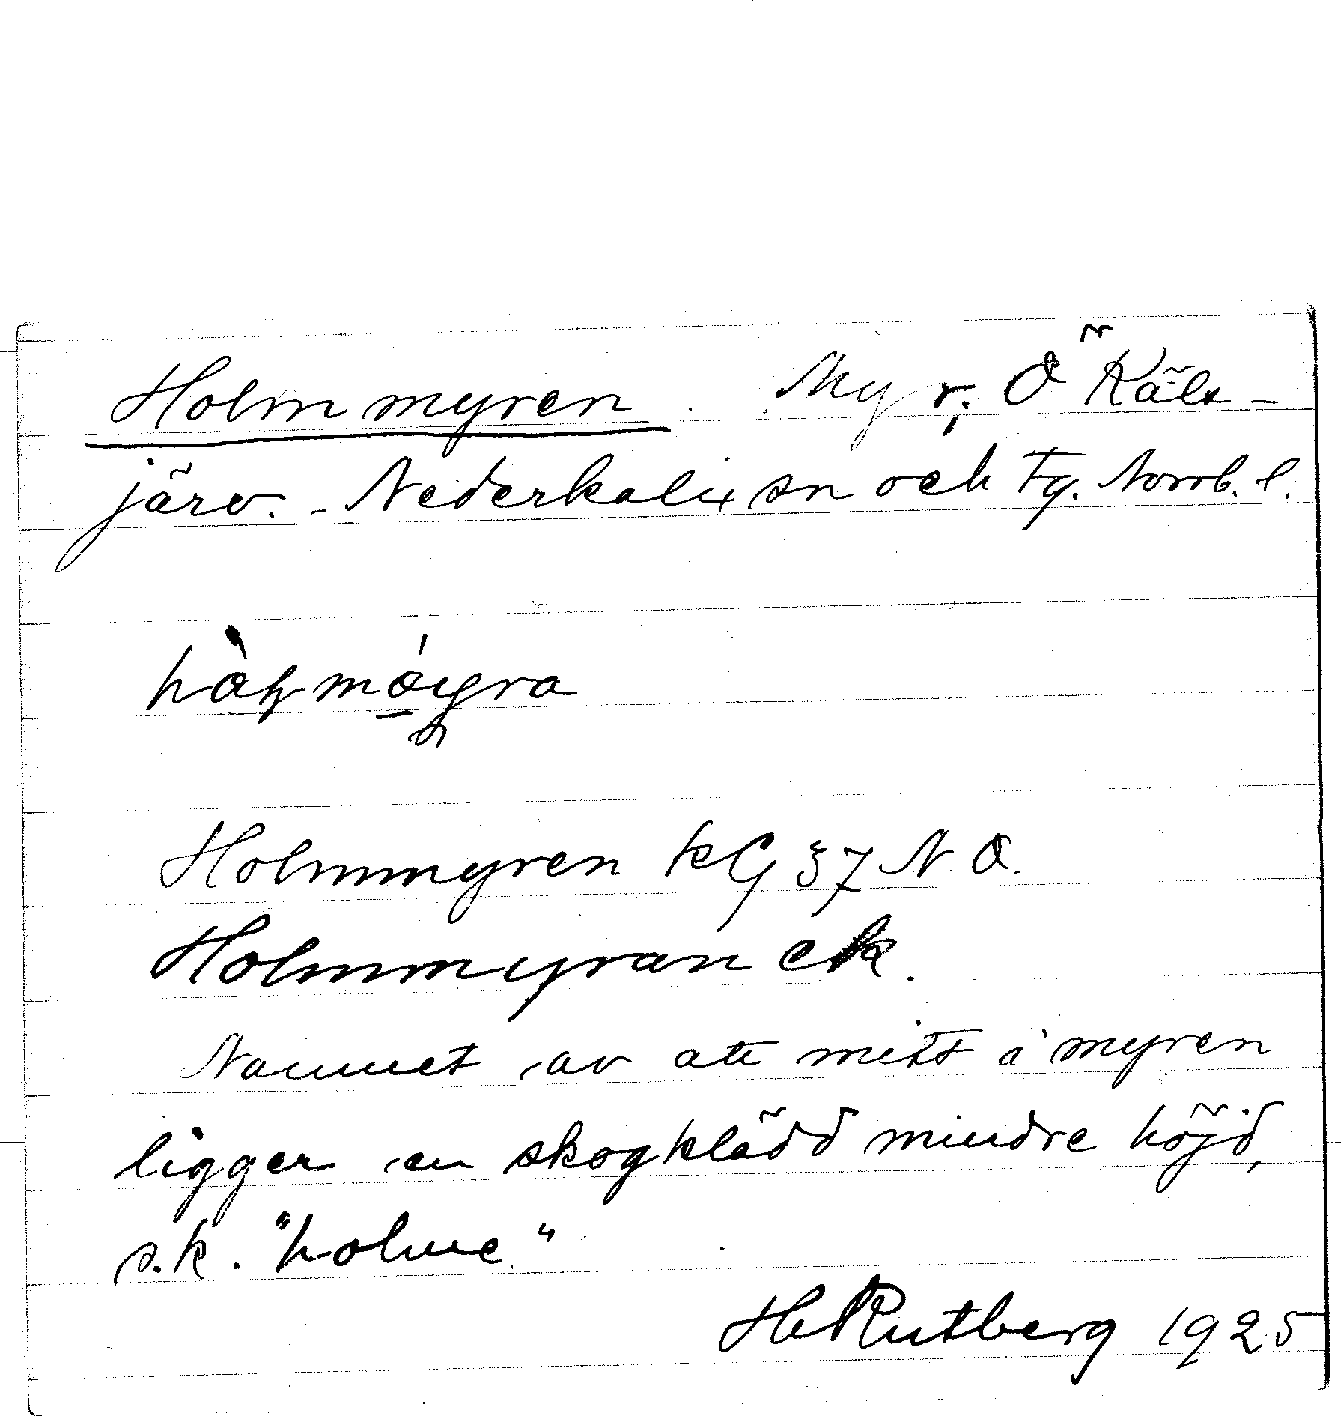 Holmmyren. Myr, Ö Käls-
järv. - Nederkalix sn och Fg. Norrb. l.
Holmmyren kG 37 N O.
Holmmyran ek.
Namnet av att mitt å myren
ligger en skogklädd mindre höjd,
s.k. "holme"
H Rutberg 1925